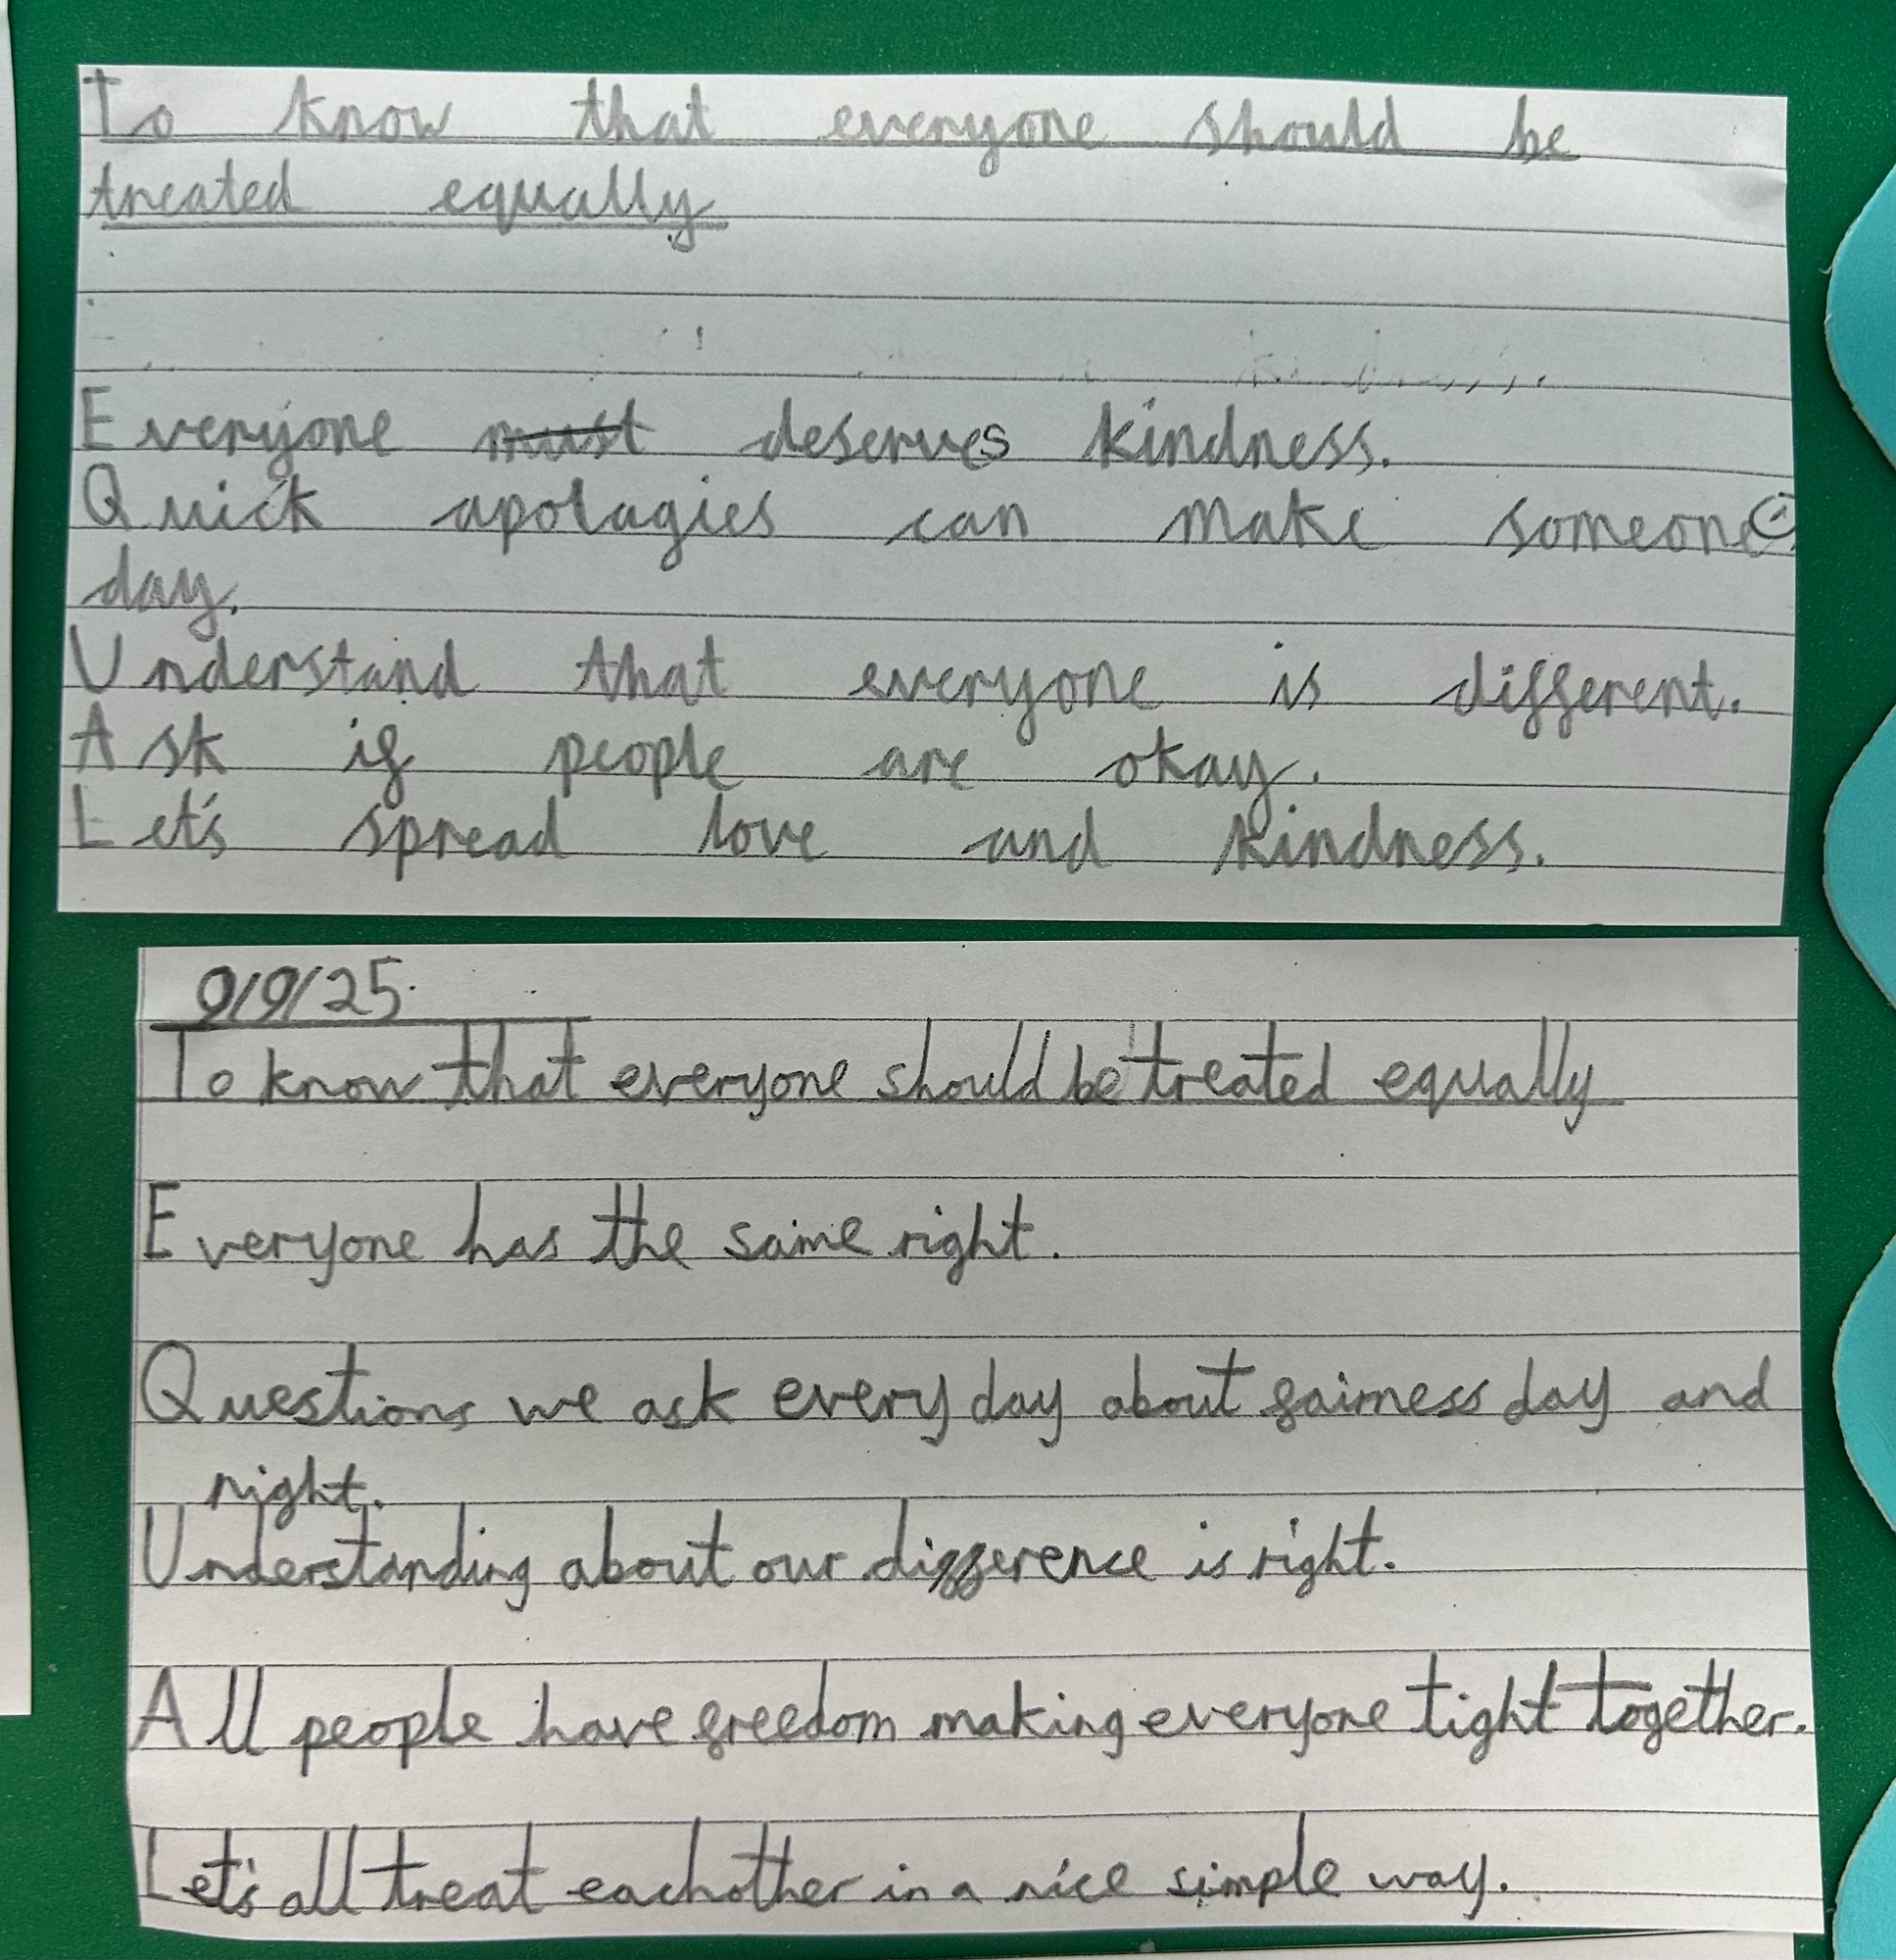 To know that everyone should be
treated equally
Everyone must deserves kindness.
Quick apolagies can make someone
day.
Understand that everyone is different.
Ask if people are okay.
Let's spread love and kindness.
9/9/25
To know that everyone should be treated equally
Everyone has the same right.
Questions we ask every day about fairness day and
night.
Understanding about our difference is right.
All people have freedom making everyone tight together.
Let's all treat eachother in a nice simple way.